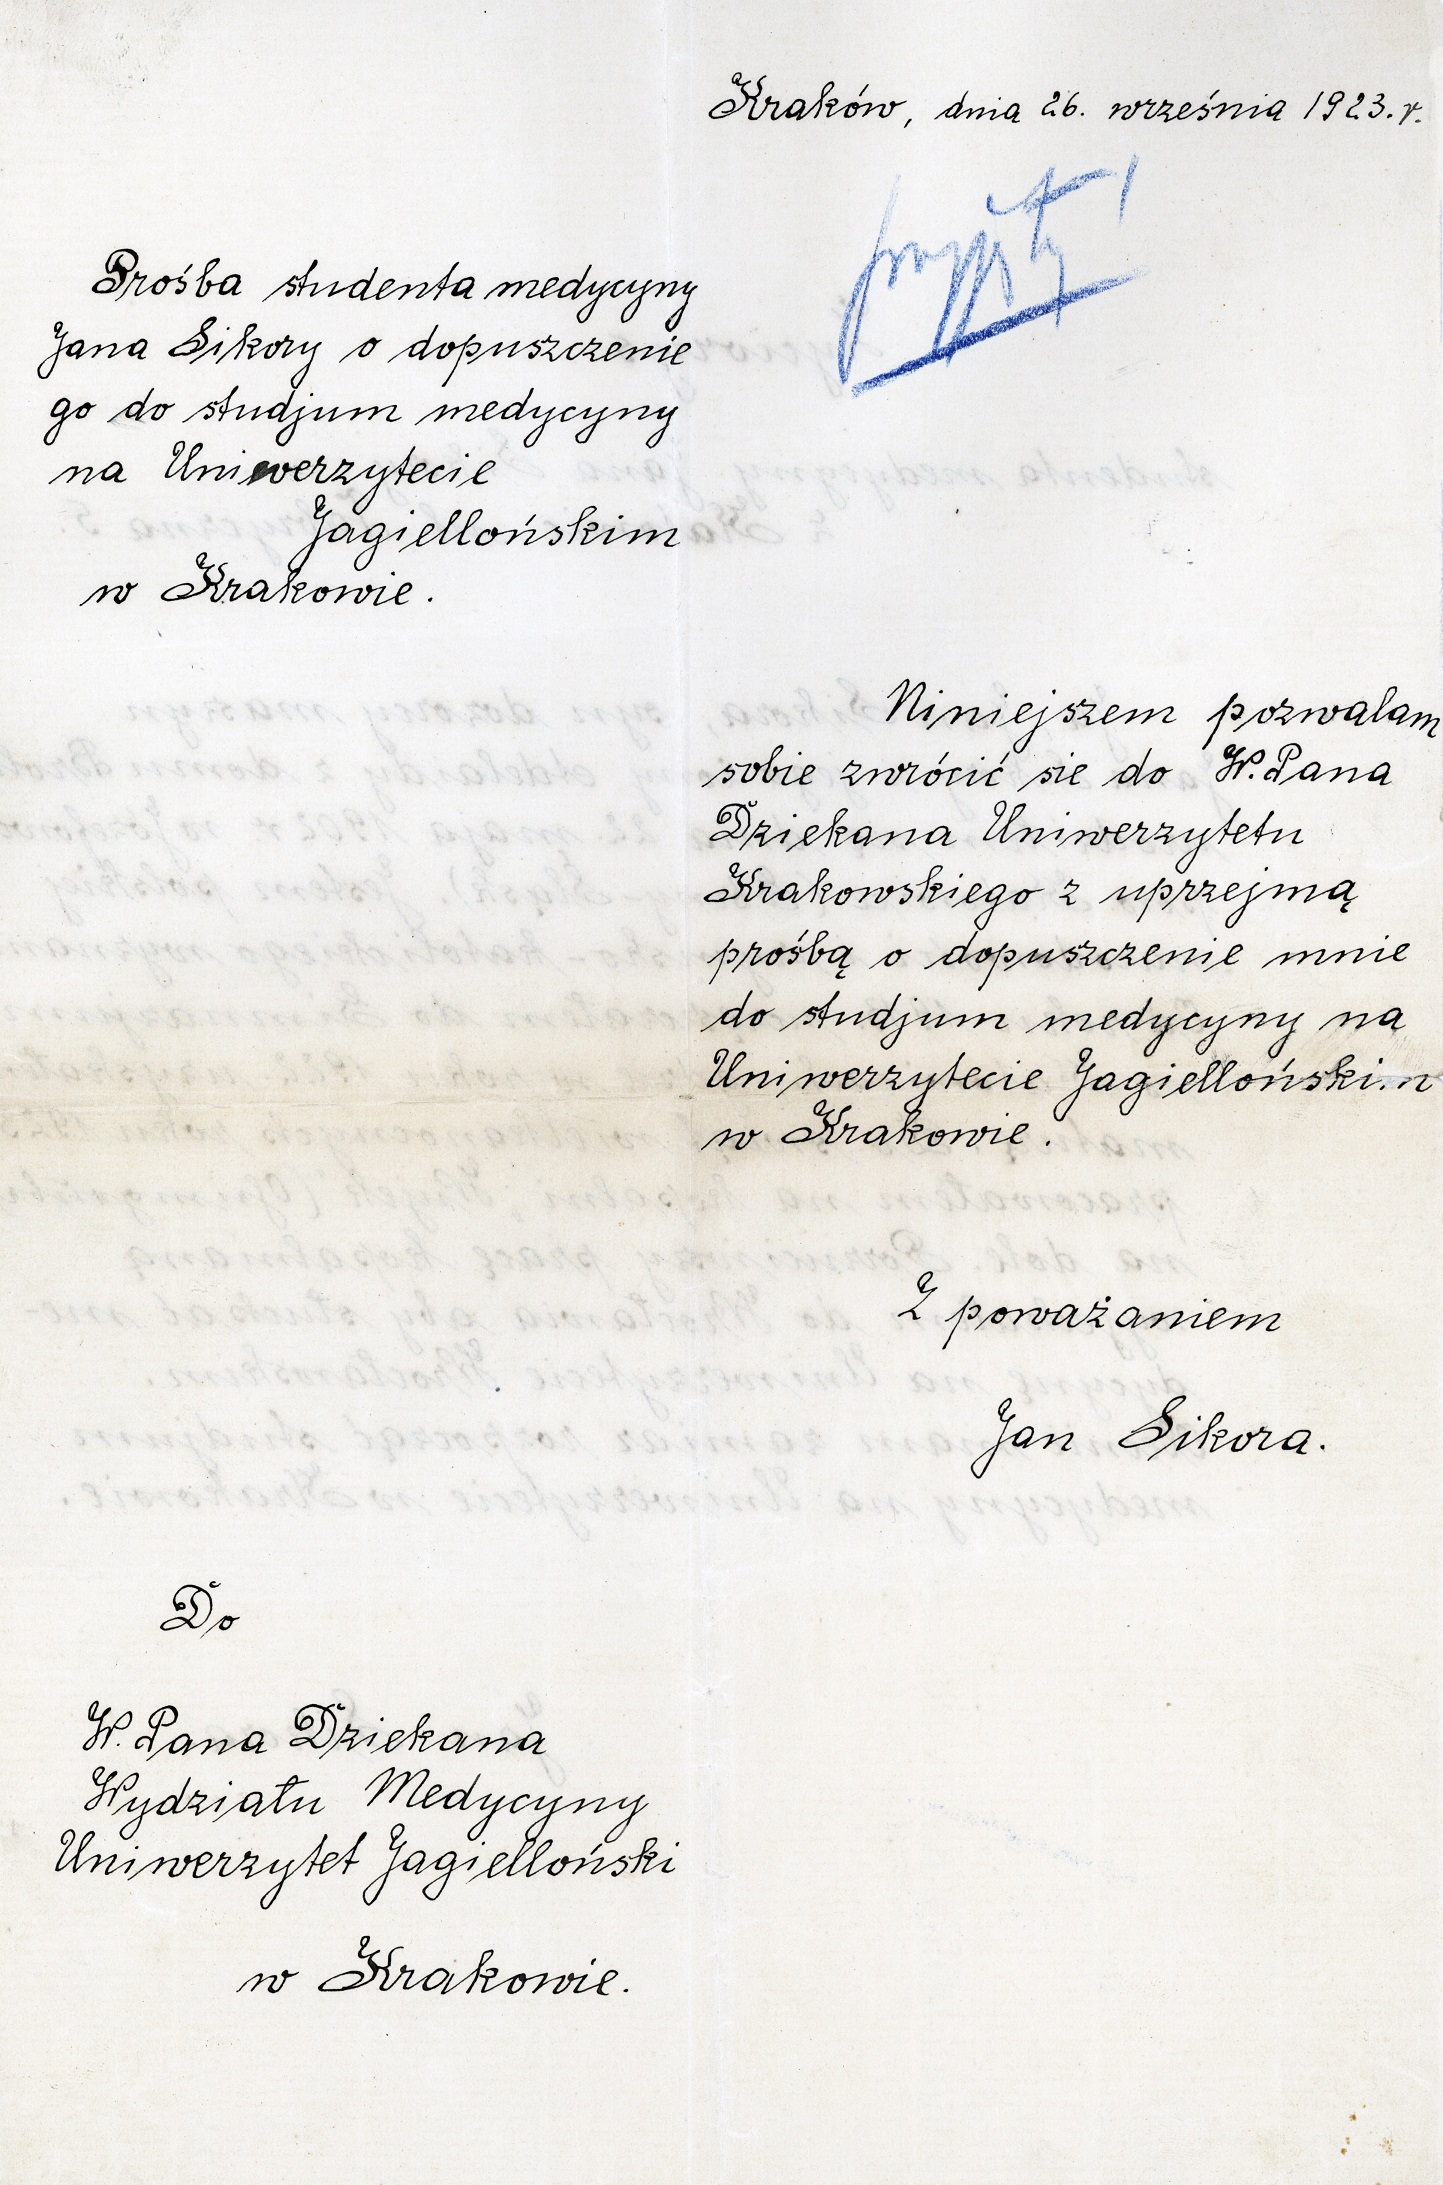 Kraków, dnia 26. września 1923. r.
przyjęty
Prośba studenta medycyny
Jana Sikory o dopuszczenie
go do studjum medycyny
na Uniwerzytecie
Jagiellońskim
w Krakowie.
Niniejszem pozwalam
sobie zwrócić sie do W. Pana
Dziekana Uniwerzytetu
Krakowskiego z uprzejmą
prośbą o dopuszczenie mnie
do studjum medycyny na
Uniwerzytecie Jagiellońskim
w Krakowie.
Z poważaniem
Jan Sikora.
Do
W. Pana Dziekana
Wydziału Medycyny
Uniwerzytet Jagielloński
w Krakowie.